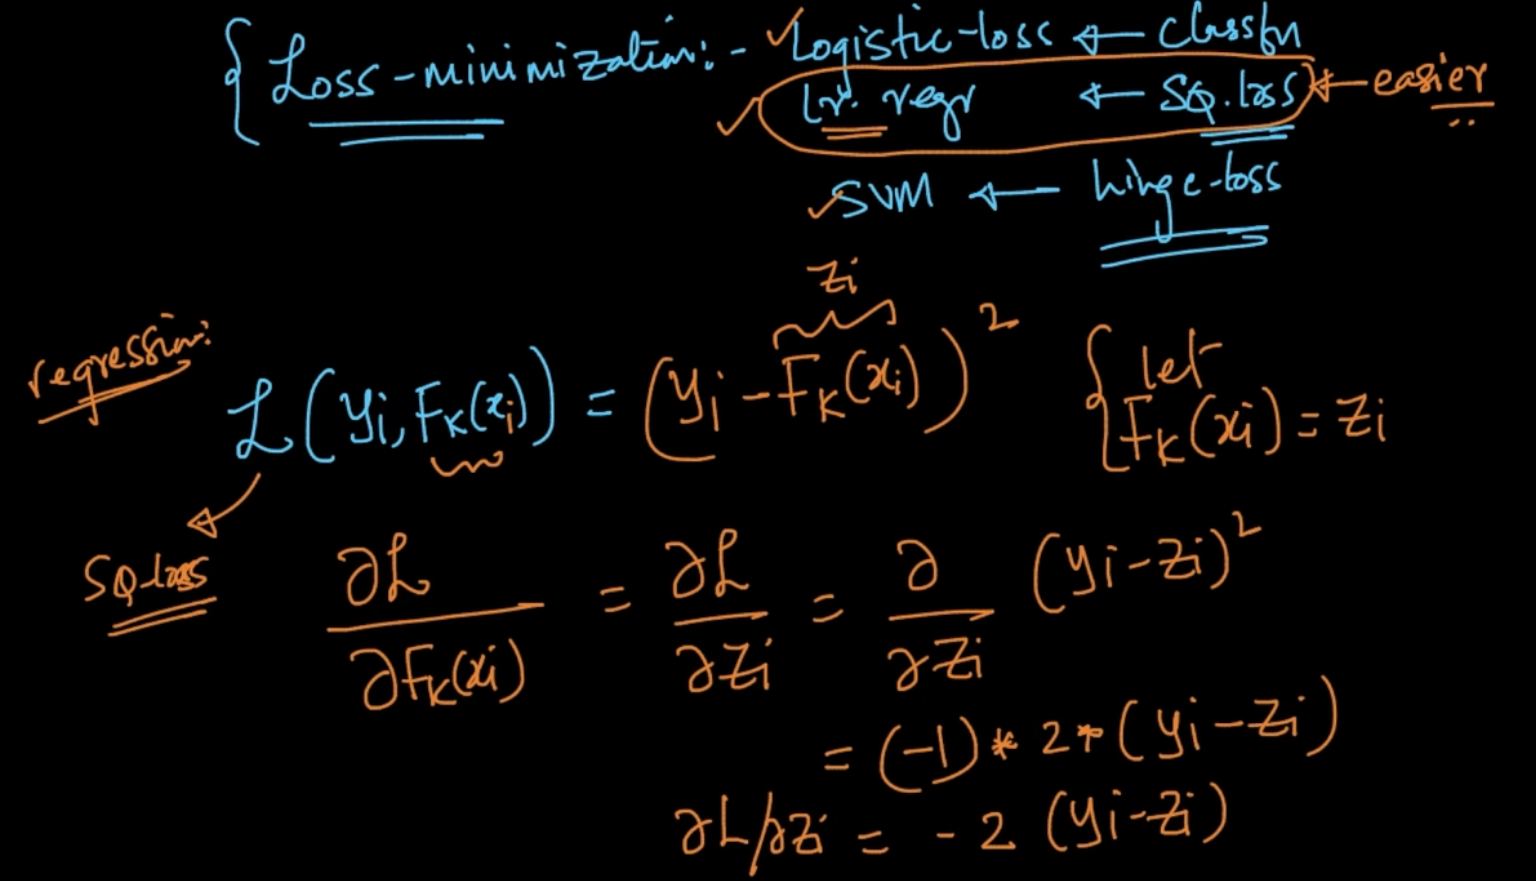 { Loss-minimization:- ✓Logistic-loss ← classfn
✓ Lr. regr ← SQ.loss ← easier
✓SVM ← hinge-loss
Zi
regression:
L(yi, FK(xi)) = (yi - FK(xi))² { let FK(xi) = Zi
SQ-loss
∂L/∂FK(xi) = ∂L/∂Zi = ∂/∂Zi (yi-Zi)²
= (-1) * 2 * (yi - Zi)
∂L/∂Zi = -2 (yi-Zi)